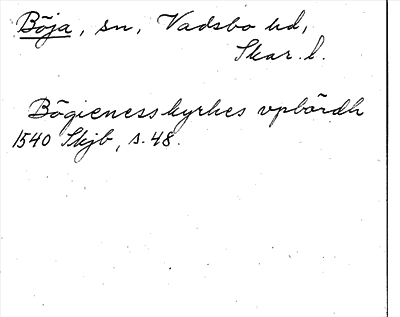 Böja, sn, Vadsbo hd,
Skar. l.
Bögieness kyrkes vpbördh
1540 Skjb, s. 48.